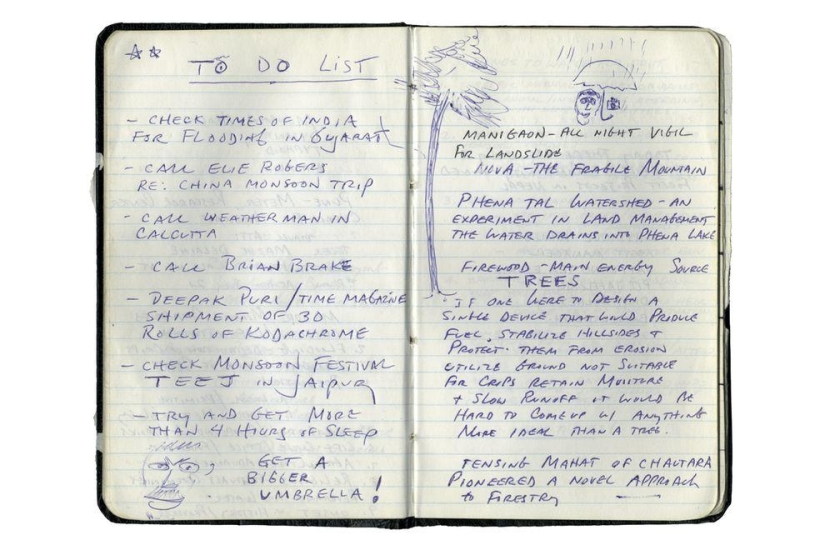 TO DO LIST
- CHECK TIMES OF INDIA
FOR FLOODING IN GUJARAT
- CALL ELIE ROGERS
RE: CHINA MONSOON TRIP
- CALL WEATHERMAN IN
CALCUTTA
- CALL BRIAN BRAKE
- DEEPAK PURI/TIME MAGAZINE
SHIPMENT OF 30
ROLLS OF KODACHROME
- CHECK MONSOON FESTIVAL
TEEJ IN JAIPUR
- TRY AND GET MORE
THAN 4 HOURS OF SLEEP
GET A
BIGGER
UMBRELLA!
MANIGAON - ALL NIGHT VIGIL
FOR LANDSLIDE
NOVA - THE FRAGILE MOUNTAIN
PHENA TAL WATERSHED - AN
EXPERIMENT IN LAND MANAGEMENT
THE WATER DRAINS INTO PHENA LAKE
FIREWOOD - MAIN ENERGY SOURCE
TREES
IF ONE WERE TO DESIGN A
SINGLE DEVICE THAT WOULD PRODUCE
FUEL, STABILIZE HILLSIDES &
PROTECT THEM FROM EROSION
UTILIZE GROUND NOT SUITABLE
FOR CROPS RETAIN MOISTURE
& SLOW RUNOFF IT WOULD BE
HARD TO COME UP W/ ANYTHING
MORE IDEAL THAN A TREE.
TENSING MAHAT OF CHAUTARA
PIONEERED A NOVEL APPROACH
to FORESTRY